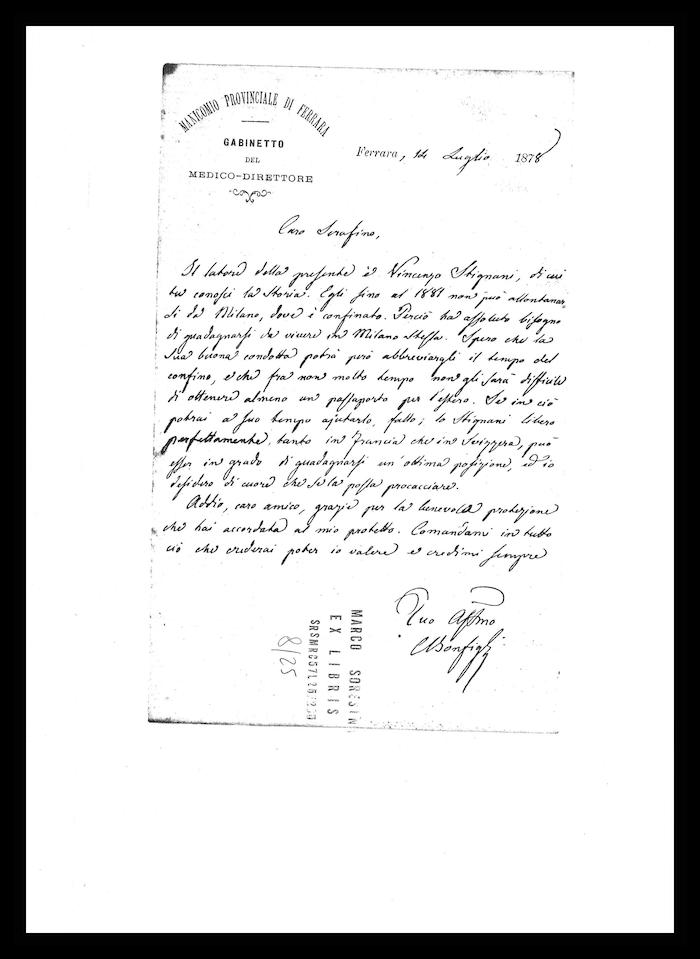 MANICOMIO PROVINCIALE DI FERRARA
GABINETTO
DEL
MEDICO-DIRETTORE
Ferrara, 14 Luglio 1878
Caro Serafino,
Il latore della presente è Vincenzo Stignani, di cui
tu conosci la storia. Egli fino al 1881 non può allontanar
si da Milano, dove è confinato. Perciò ha assoluto bisogno
di guadagnarsi da vivere in Milano stessa. Spero che la
sua buona condotta potrà però abbreviargli il tempo del
confino, e che fra non molto tempo non gli sarà difficile
di ottenere almeno un passaporto per l'estero. Se in ciò
potrai a suo tempo ajutarlo, fallo; lo Stignani libero
perfettamente, tanto in Francia che in Svizzera, può
esser in grado di guadagnarsi un'ottima posizione, ed io
desidero di cuore che se la possa procacciare.
Addio, caro amico, grazie per la benevola protezione
che hai accordata al mio protetto. Comandami in tutto
ciò che crederai poter io valere e credimi sempre
Tuo Affmo
CBonfigli
MARCO SORESIN
EX LIBRIS
8/25